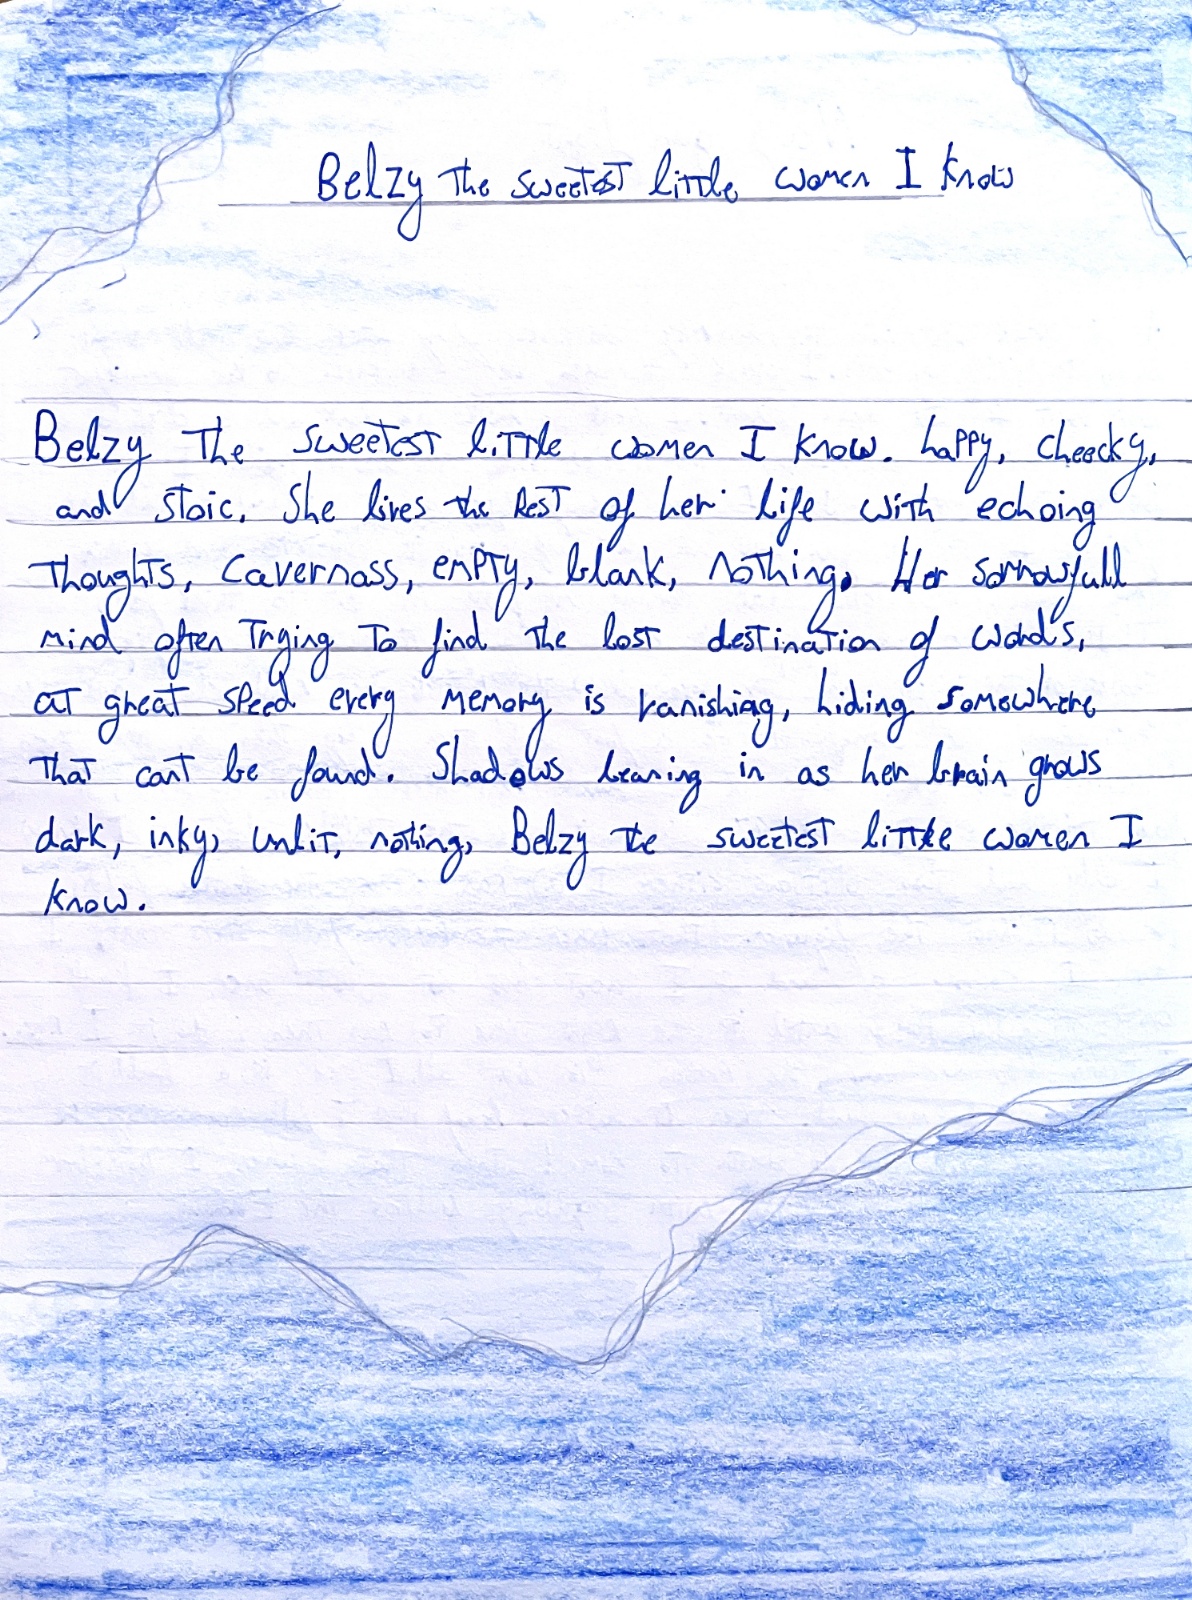 Belzy the sweetest little women I know
Belzy The sweetest little women I know. happy, cheecky,
and stoic. She lives the Rest of her life with echoing
Thoughts, Cavernass, empty, blank, nothing. Her sorrowfull
mind often Trying To find the lost destination of words,
at great speed every memory is vanishing, hiding somewhere
That cant be found. Shadows leaning in as her brain grows
dark, inky, unlit, nothing, Belzy the sweetest little women I
know.